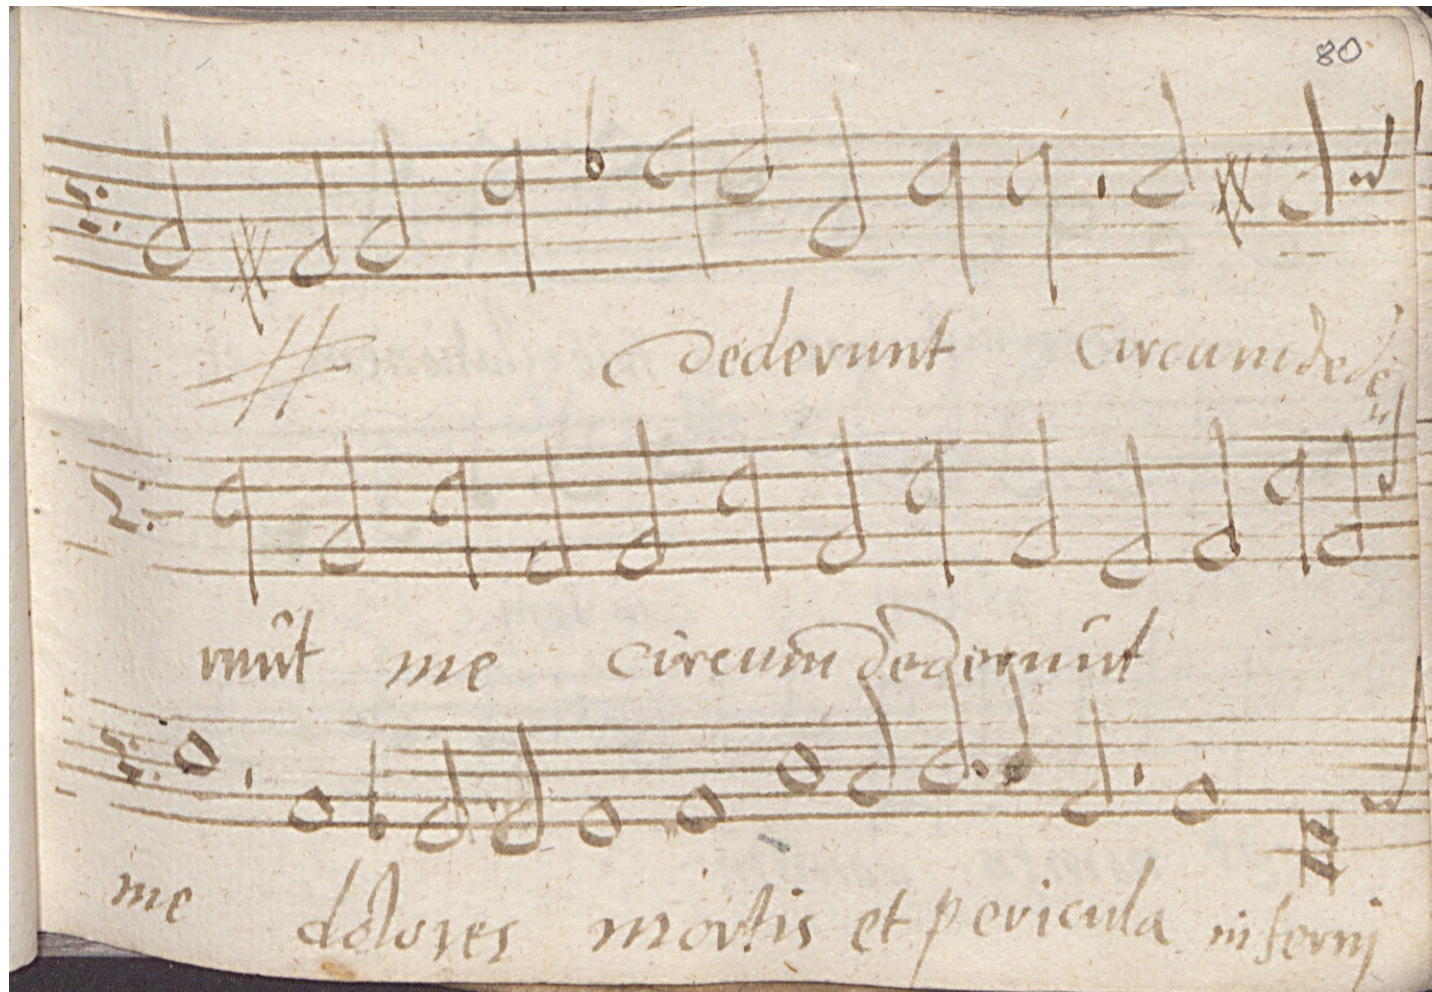 80
dederunt circumdede
runt me circumdederunt
me dolores mortis et pericula infernj